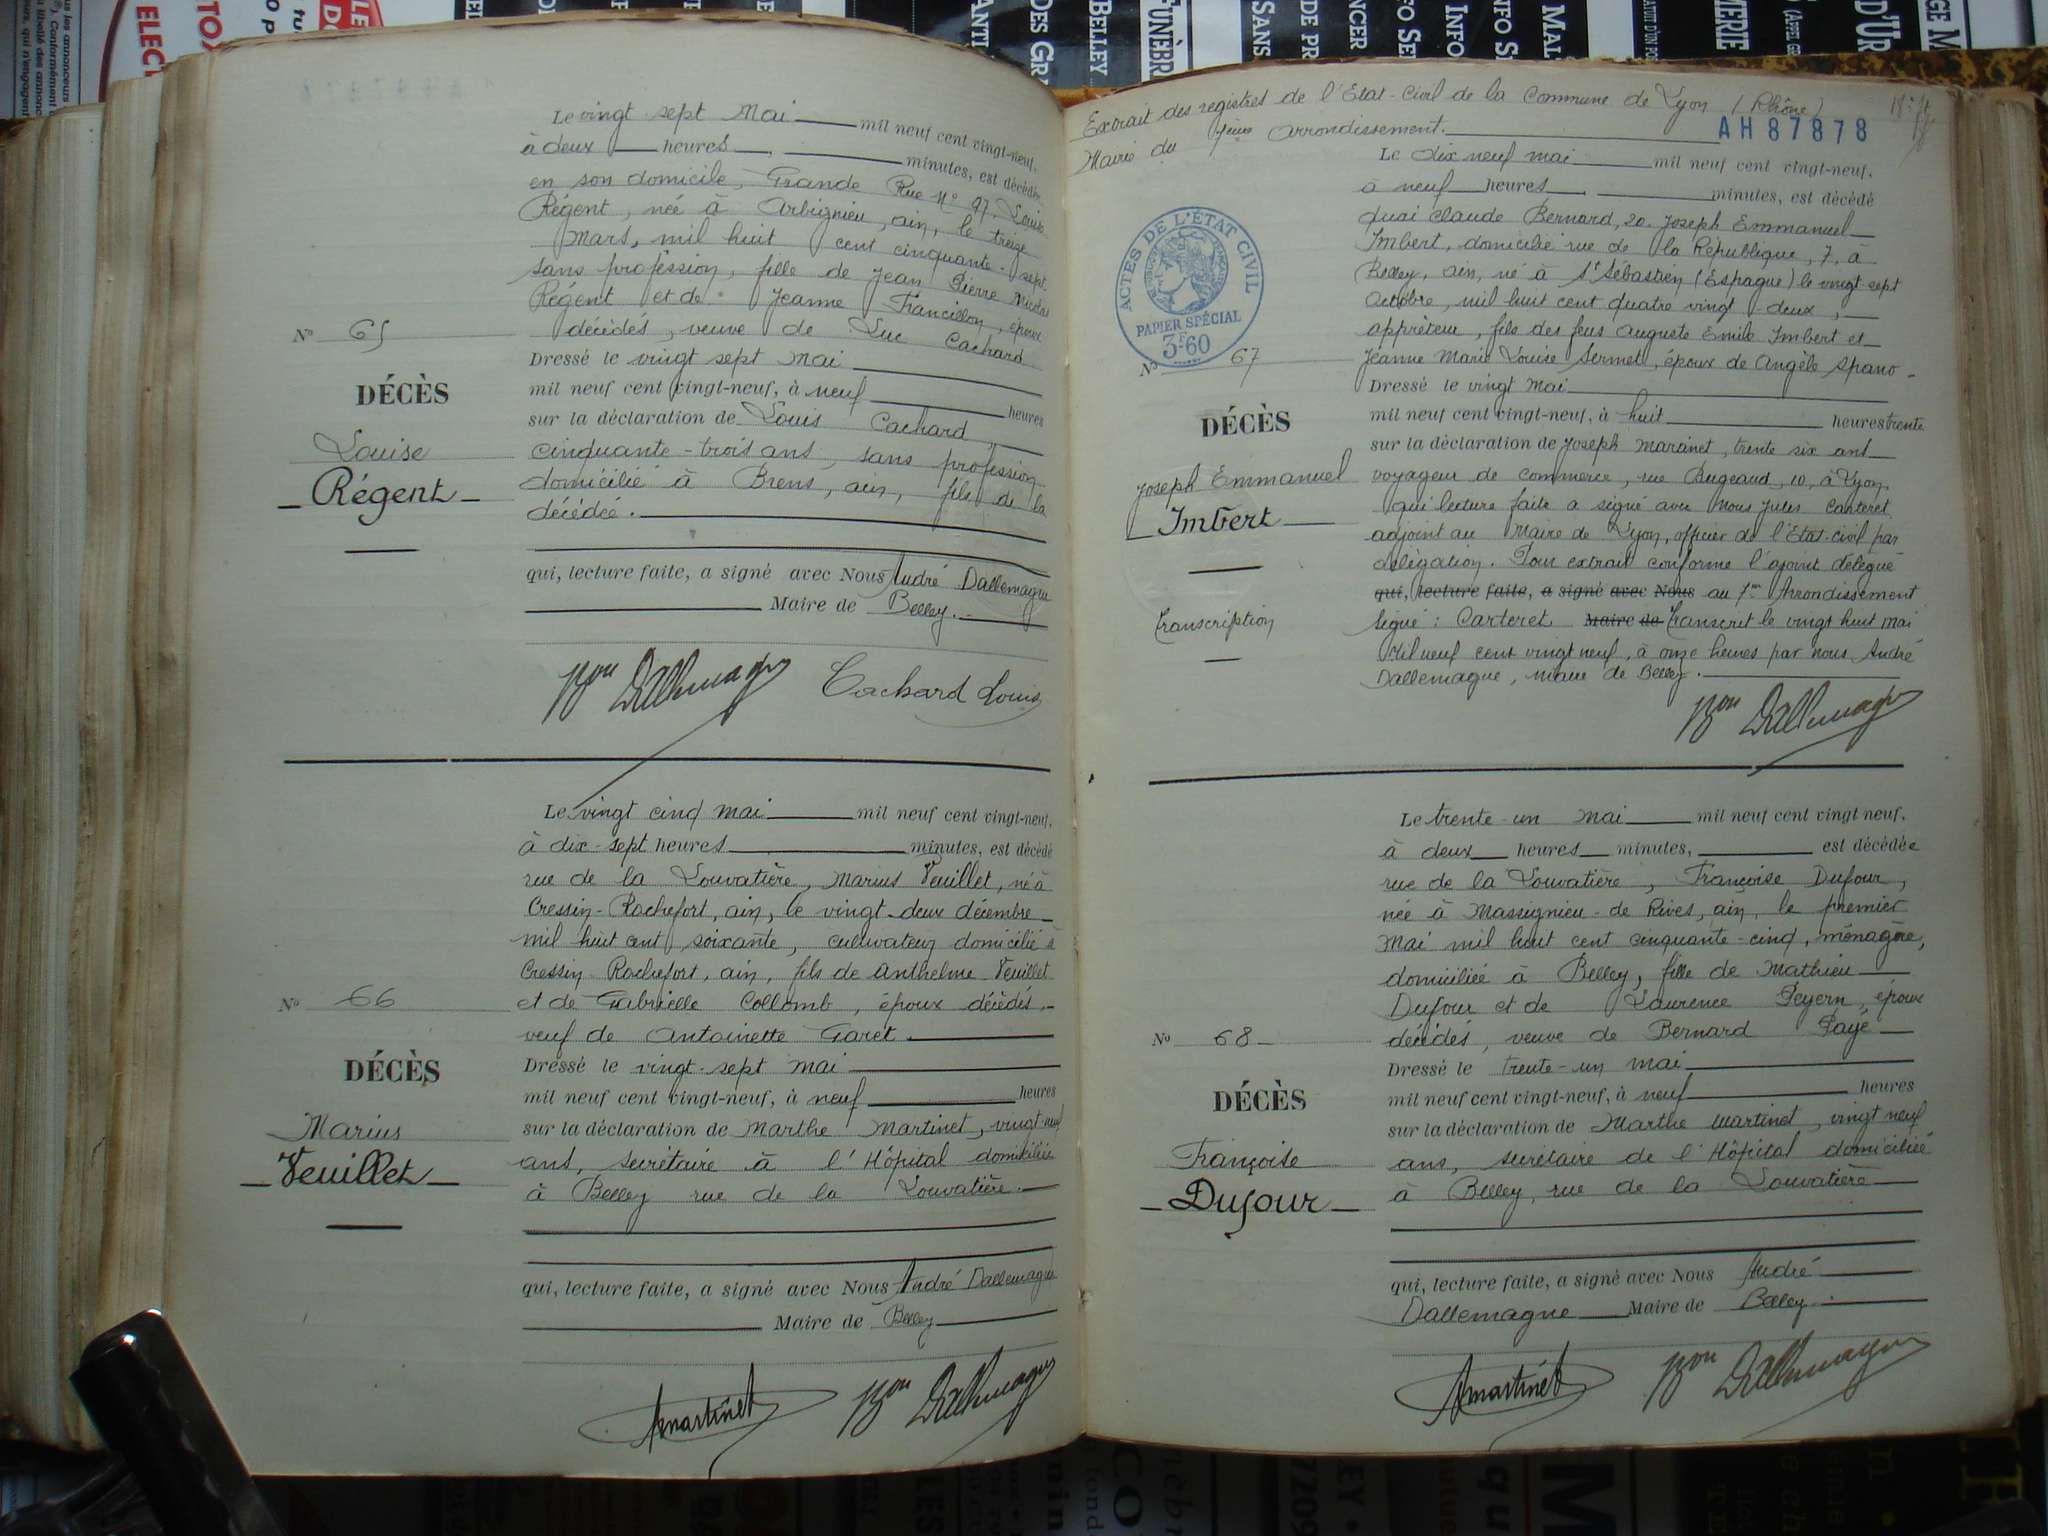 Le vingt sept Mai mil neuf cent vingt-neuf,
à deux heures, minutes, est décédée
en son domicile, Grande Rue No 97. Louise
Régent, née à Arbignieu, ain, le treize
Mars, mil huit cent cinquante-sept
sans profession, fille de Jean Pierre Nicolas
Régent et de Jeanne Francillon, époux
décédés, veuve de Luc Cachard
No 65
Dressé le vingt sept Mai
mil neuf cent vingt-neuf, à neuf heures
DÉCÈS
sur la déclaration de Louis Cachard,
Louise
cinquante-trois ans, sans profession
Régent
domicilié à Brens, ain, fils de la
décédée.
qui, lecture faite, a signé avec Nous André Dallemagne
Maire de Belley.
Bon Dallemagne Cachard Louis
Le vingt cinq mai mil neuf cent vingt-neuf,
à dix-sept heures minutes, est décédé
rue de la Louvatière, Marius Veuillet, né à
Cressin-Rochefort, ain, le vingt-deux décembre
mil huit cent soixante, cultivateur domicilié à
Cressin-Rochefort, ain, fils de Anthelme Veuillet
No 66
et de Gabrielle Collomb, époux décédés,
veuf de Antoinette Garet.
DÉCÈS
Dressé le vingt-sept mai
mil neuf cent vingt-neuf, à neuf heures
Marius
sur la déclaration de Marthe Martinet, vingt-neuf
Veuillet
ans, secrétaire à l'Hôpital domiciliée
à Belley rue de la Louvatière.
qui, lecture faite, a signé avec Nous André Dallemagne
Maire de Belley
Martinet Bon Dallemagne
Extrait des registres de l'Etat-Civil de la Commune de Lyon (Rhône)
Mairie du 7ème Arrondissement.
AH87878
Le dix neuf mai mil neuf cent vingt-neuf,
à neuf heures, minutes, est décédé
quai Claude Bernard, 20. Joseph Emmanuel
Imbert, domicilié rue de la République, 7, à
Belley, ain, né à St Sébastien (Espagne) le vingt sept
octobre, mil huit cent quatre vingt-deux,
apprêteur, fils des feus Auguste Emile Imbert et
Jeanne Marie Louise Sermet, époux de Angèle Spano.
ACTES DE L'ÉTAT CIVIL
RÉPUBLIQUE FRANÇAISE
PAPIER SPÉCIAL
3F60
No 67
Dressé le vingt Mai
mil neuf cent vingt-neuf, à huit heures trente
DÉCÈS
sur la déclaration de Joseph Marcinet, trente six ans
Joseph Emmanuel
voyageur de commerce, rue Bugeaud, 10, à Lyon,
Imbert
qui lecture faite a signé avec Nous Jules Carteret
adjoint au Maire de Lyon, officier de l'Etat-civil par
délégation. Pour extrait conforme l'ajoint délégué
qui, lecture faite, a signé avec Nous au 7me Arrondissement
Transcription
signé: Carteret Maire de Transcrit le vingt huit mai
Mil neuf cent vingt neuf, à onze heures par nous André
Dallemagne, maire de Belley.
Bon Dallemagne
Le trente-un Mai mil neuf cent vingt neuf,
à deux heures minutes, est décédée
rue de la Louvatière, Françoise Dufour,
née à Massignieu-de Rives, ain, le premier
Mai mil huit cent cinquante-cinq, ménagère,
domiciliée à Belley, fille de Mathieu
Dufour et de Laurence Peyern, époux
No 68
décédés, veuve de Bernard Payé
Dressé le trente-un mai
DÉCÈS
mil neuf cent vingt-neuf, à neuf heures
sur la déclaration de Marthe Martinet, vingt neuf
Françoise
ans, secrétaire de l'Hôpital domiciliée
Dufour
à Belley, rue de la Louvatière
qui, lecture faite, a signé avec Nous André
Dallemagne Maire de Belley.
Martinet Bon Dallemagne